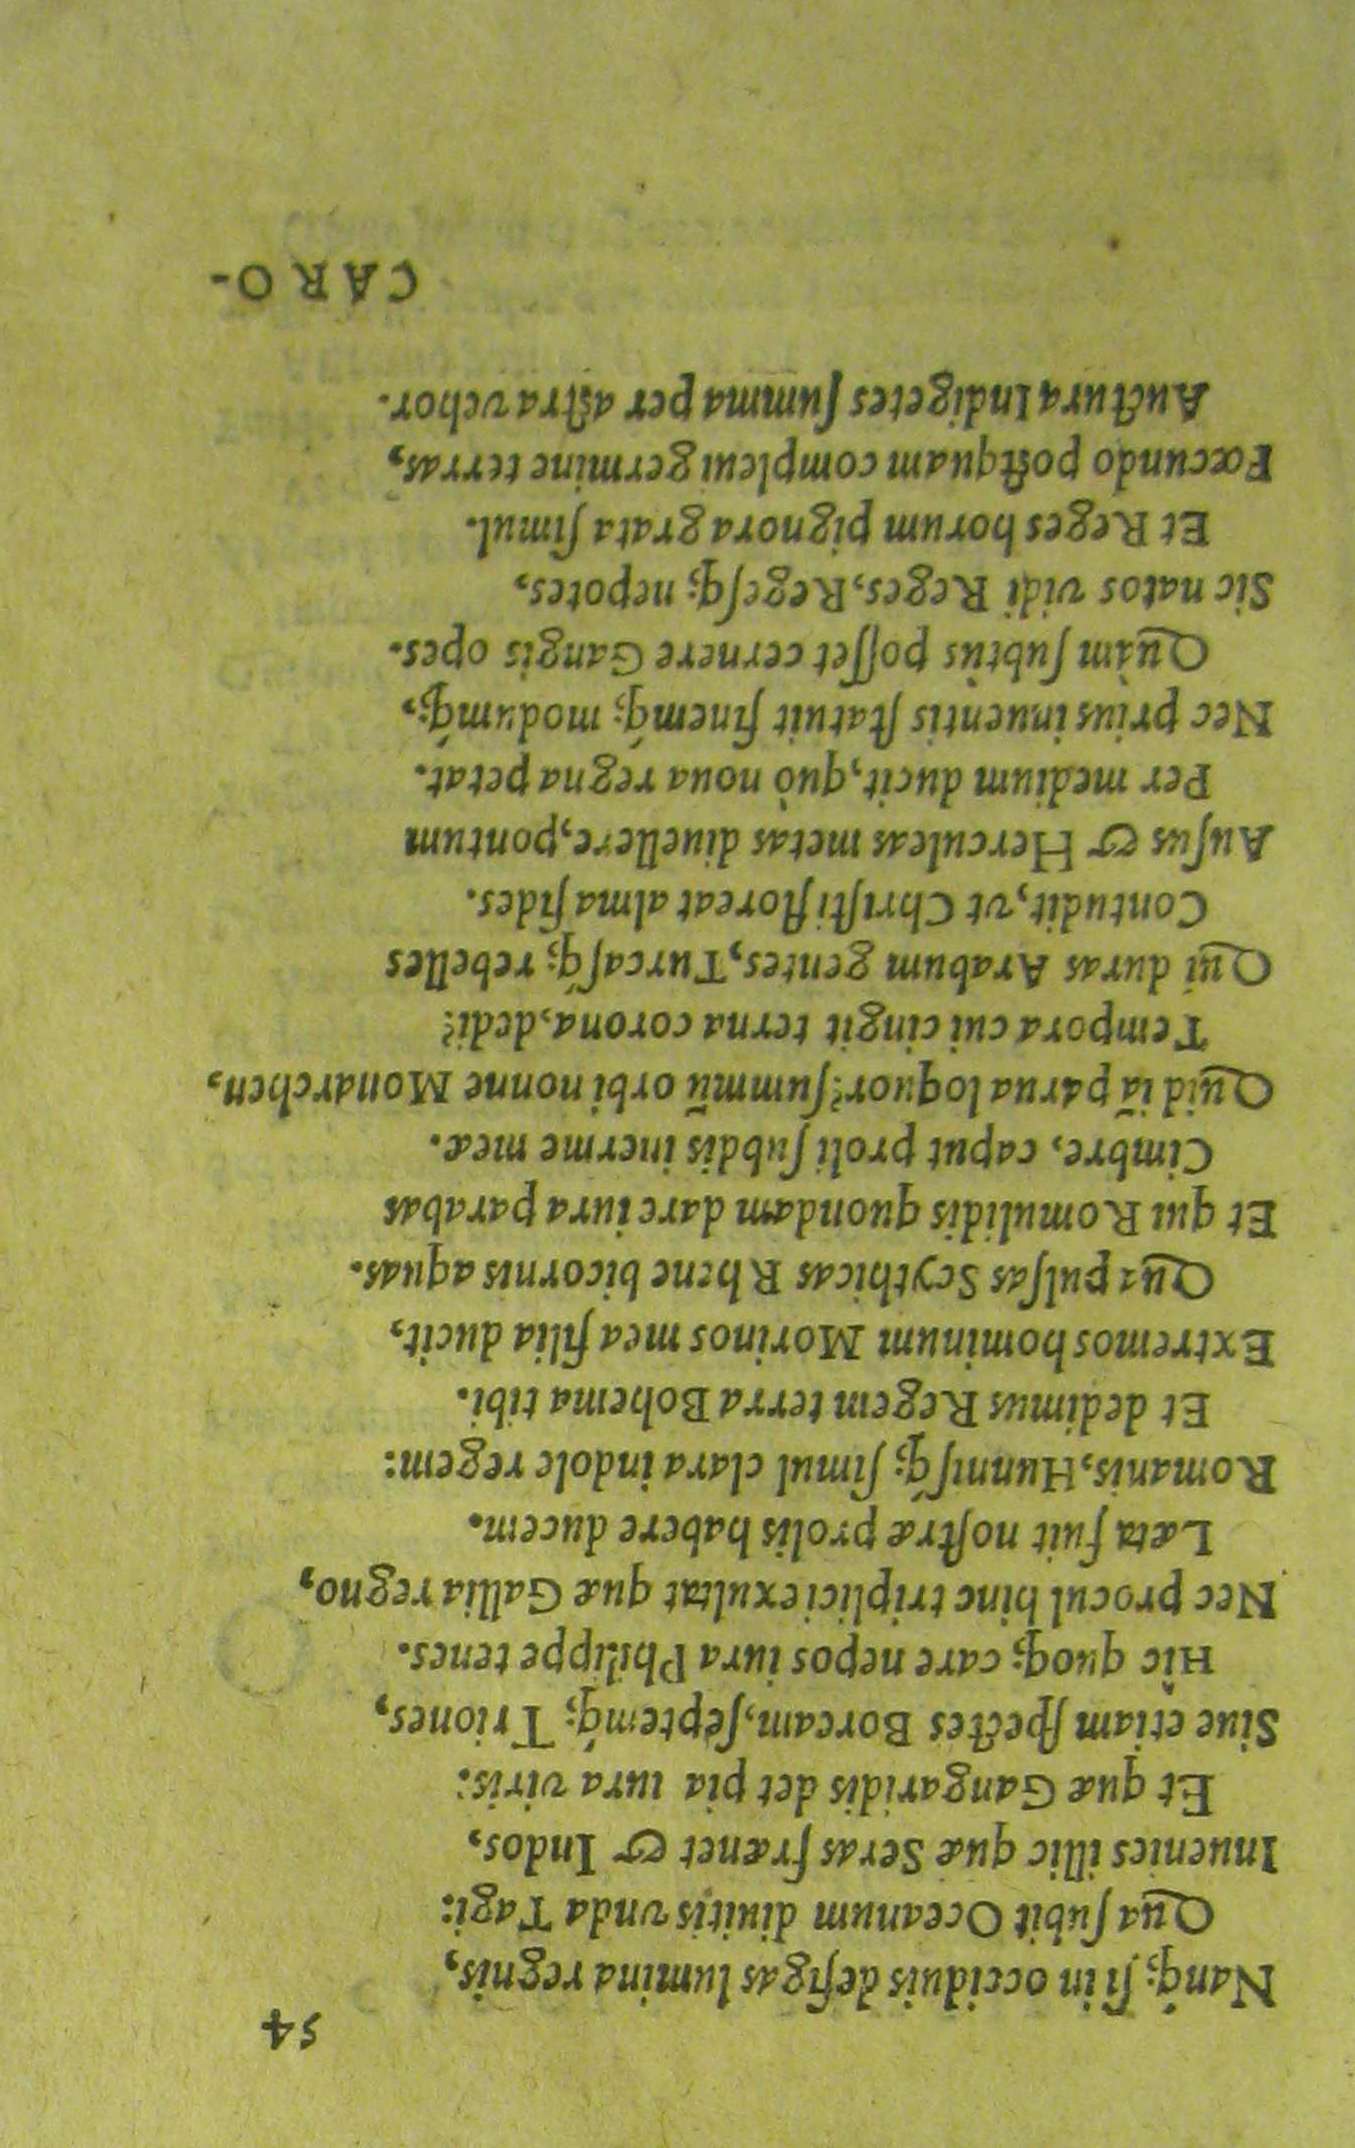 54
Nanq́; ſi in occiduis defigas lumina regnis,
Qua ſubit Oceanum diuitis vnda Tagi:
Inuenies illic quæ Seras frænet & Indos,
Et quæ Gangaridis det pia iura viris:
Siue etiam ſpectes Boream, ſeptemq́; Triones,
Hîc quoq; care nepos iura Philippe tenes.
Nec procul hinc triplici exultat quæ Gallia regno,
Læta fuit noſtræ prolis habere ducem.
Romanis, Hunniſq́; ſimul clara indole regem:
Et dedimus Regem terra Bohema tibi.
Extremos hominum Morinos mea filia ducit,
Quı pulſas Scythicas Rhene bicornis aquas.
Et qui Romulidis quondam dare iura parabas
Cimbre, caput proli ſubdis inerme meæ.
Quid iā parua loquor? ſummū orbi nonne Monarchen,
Tempora cui cingit terna corona, dedi?
Qui duras Arabum gentes, Turcaſq́; rebelles
Contudit, vt Chriſti floreat alma fides.
Auſus & Herculeas metas diuellere, pontum
Per medium ducit, quò noua regna petat.
Nec prius inuentis ſtatuit finemq́; modumq́;,
Quàm ſubtùs poſſet cernere Gangis opes.
Sic natos vidi Reges, Regeſq́; nepotes,
Et Reges horum pignora grata ſimul.
Fœcundo poſtquam compleui germine terras,
Auctura Indigetes ſumma per aſtra vehor.
CARO-